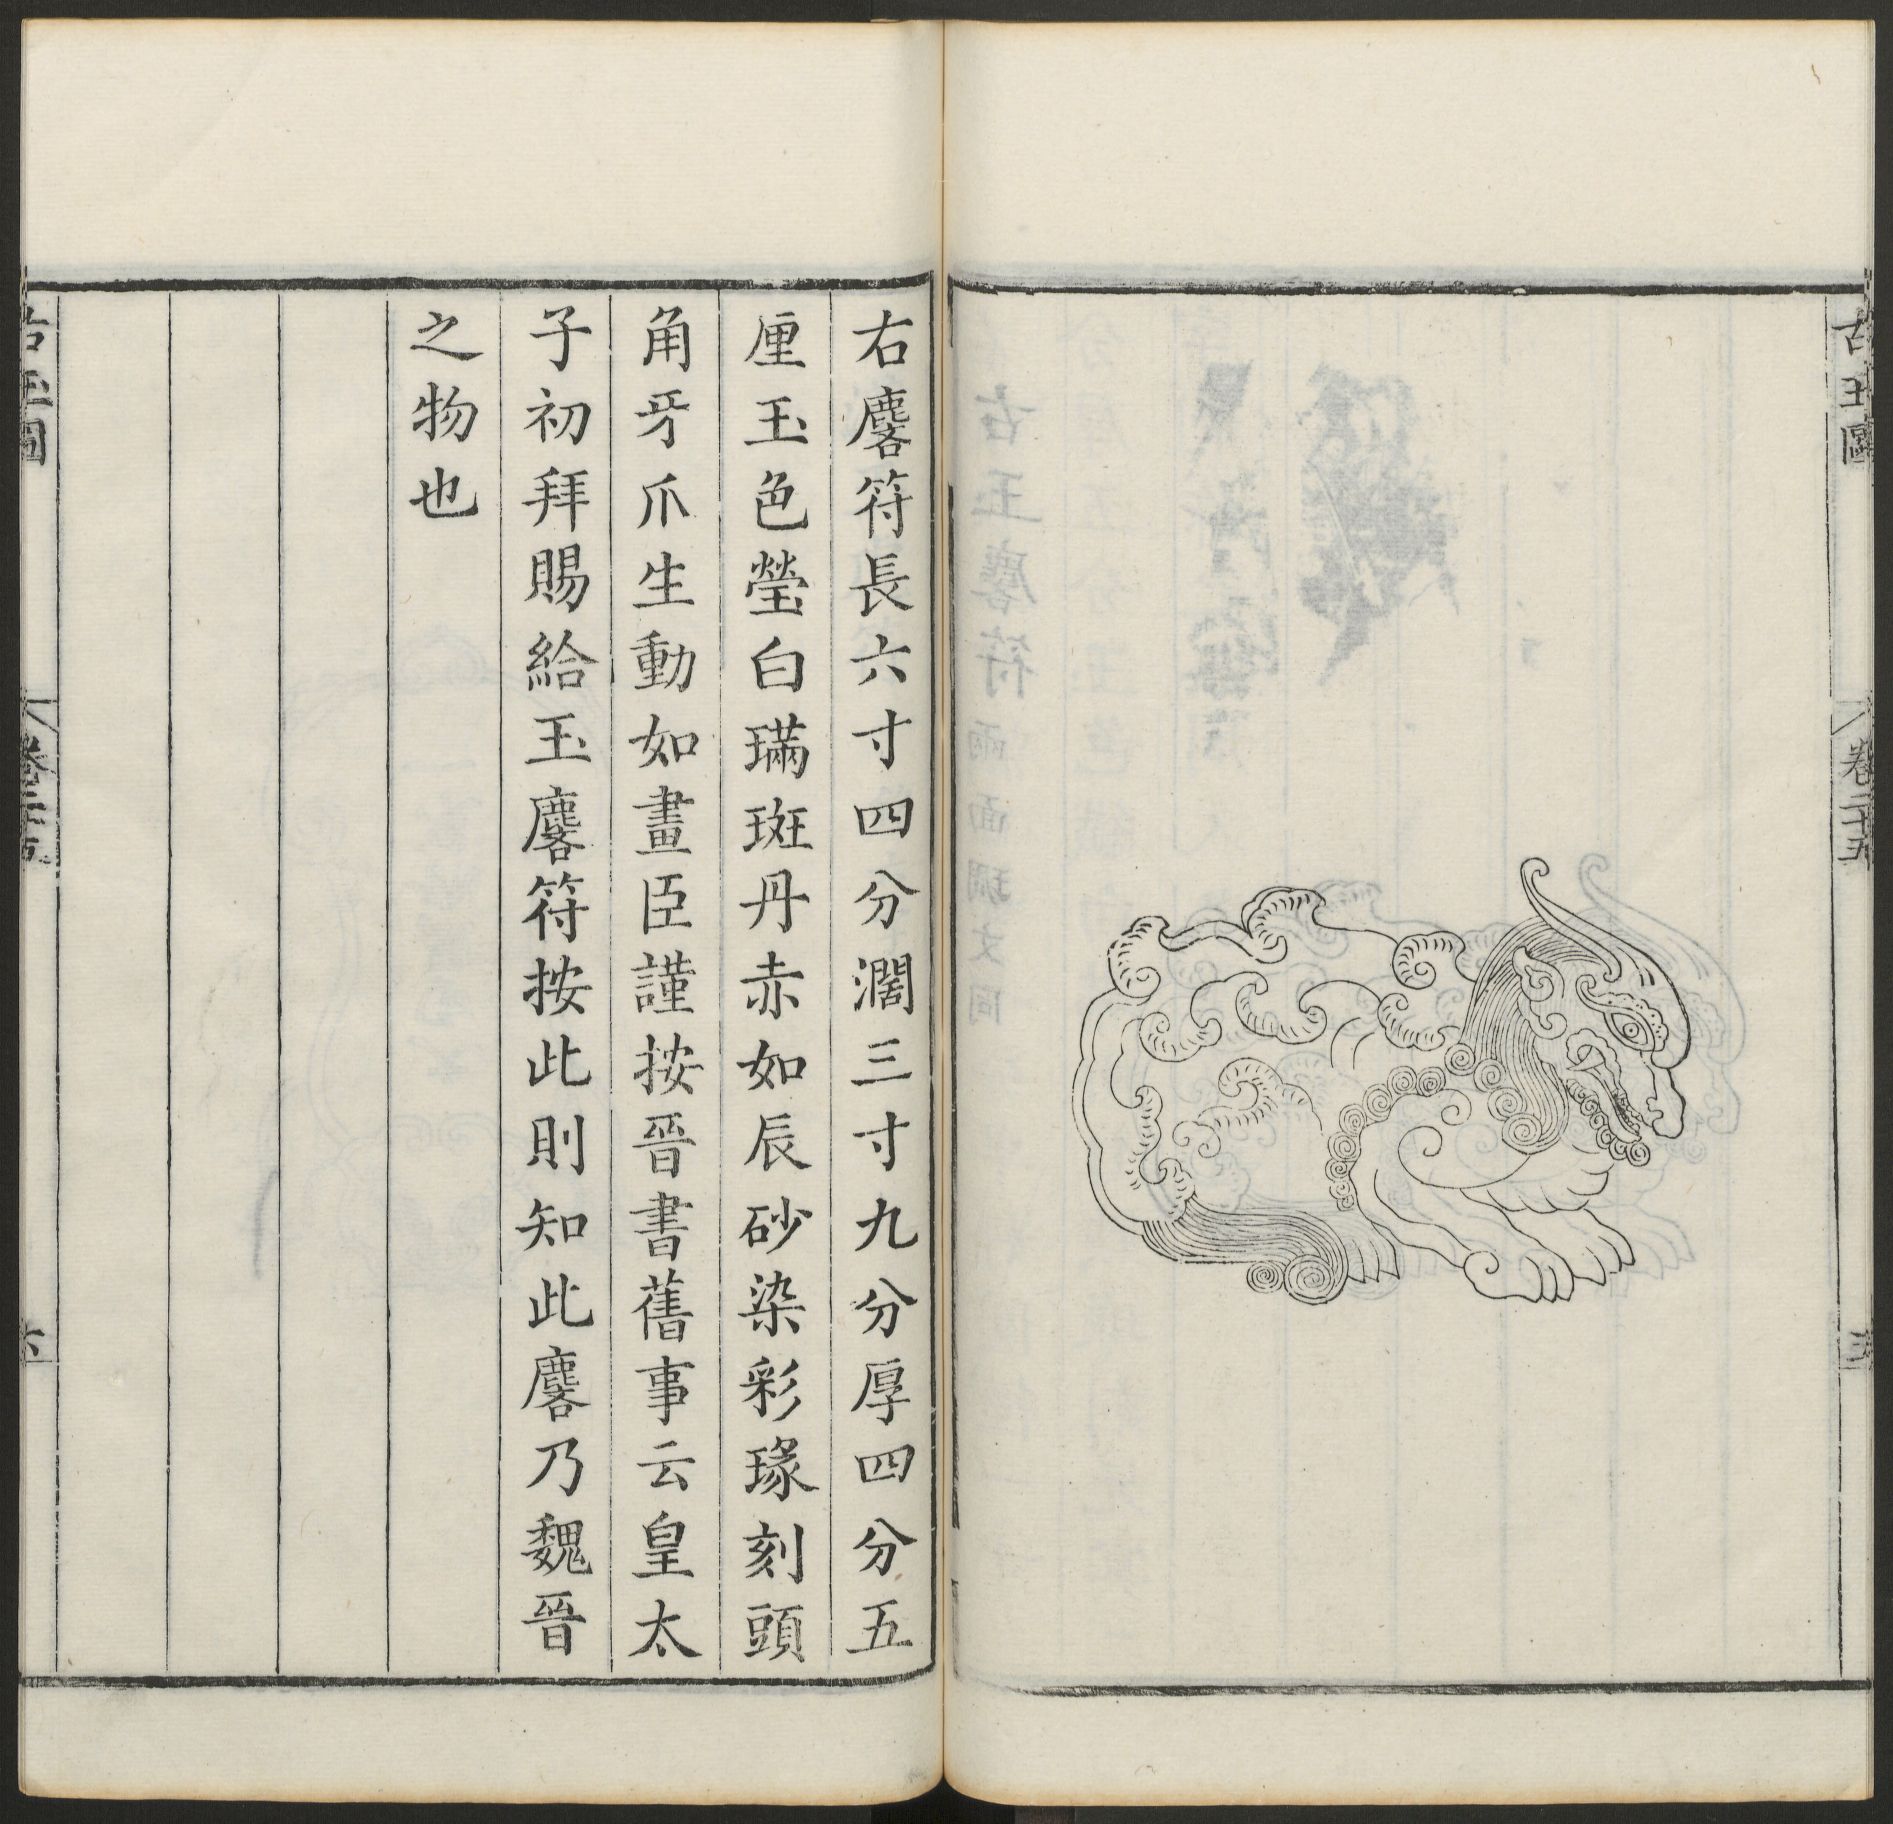 古玉圖
卷二十五
右麐符長六寸四分濶三寸九分厚四分五
厘玉色瑩白璊斑丹赤如辰砂染彩瑑刻頭
角牙爪生動如畫臣謹按晉書舊事云皇太
子初拜賜給玉麐符按此則知此麐乃魏晉
之物也
古玉圖
卷二十五
六